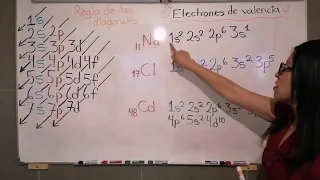 Regla de las diagonales
1s
2s 2p
3s 3p 3d
4s 4p 4d 4f
5s 5p 5d 5f
6s 6p 6d
7s 7p 7d
Electrones de valencia
₁₁Na 1s² 2s² 2p⁶ 3s¹
₁₇Cl 1s² 2s² 2p⁶ 3s² 3p⁵
₄₈Cd 1s² 2s² 2p⁶ 3s²
4p⁶ 5s² 4d¹⁰